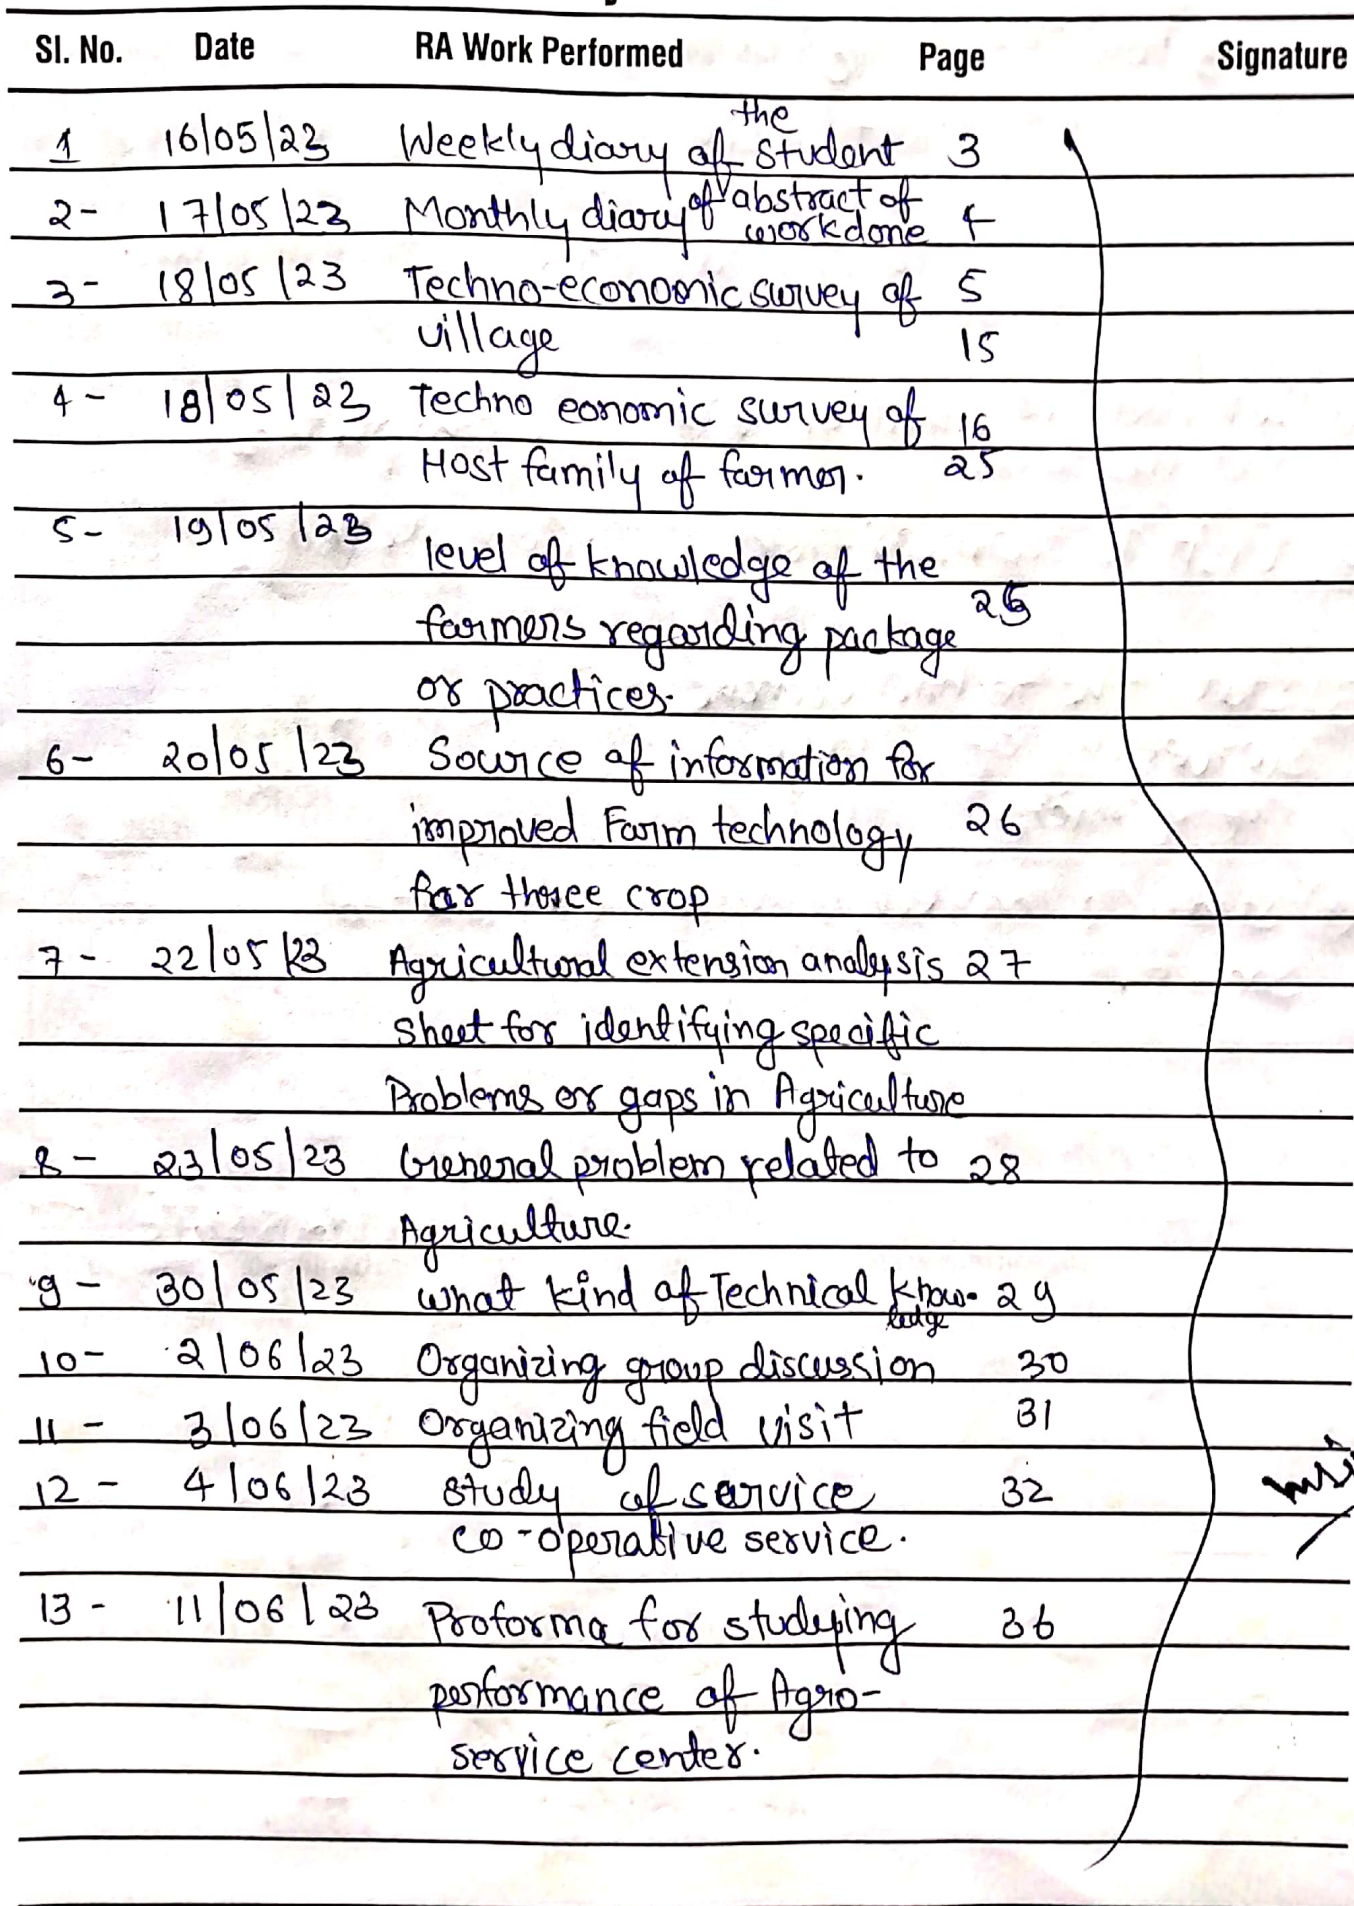 Sl. No. Date RA Work Performed Page Signature
1 16/05/23 Weekly diary of the student 3
2- 17/05/23 Monthly diary of abstract of workdone 4
3- 18/05/23 Techno-economic survey of 5
village 15
4- 18/05/23 Techno eonomic survey of 16
Host family of farmer. 25
5- 19/05/23
level of knowledge of the
farmers regarding package 25
or practices.
6- 20/05/23 Source of information for
improved Farm technology 26
for three crop
7- 22/05/23 Agricultural extension analysis 27
Sheet for identifying specific
Problems or gaps in Agriculture
8- 23/05/23 General problem related to 28
Agriculture.
9- 30/05/23 what kind of Technical know- 29
ledge
10- 2/06/23 Organizing group discussion 30
11- 3/06/23 Organizing field visit 31
12- 4/06/23 study of service 32
co-operative service.
13- 11/06/23 Proforma for studying 36
performance of Agro-
service center.